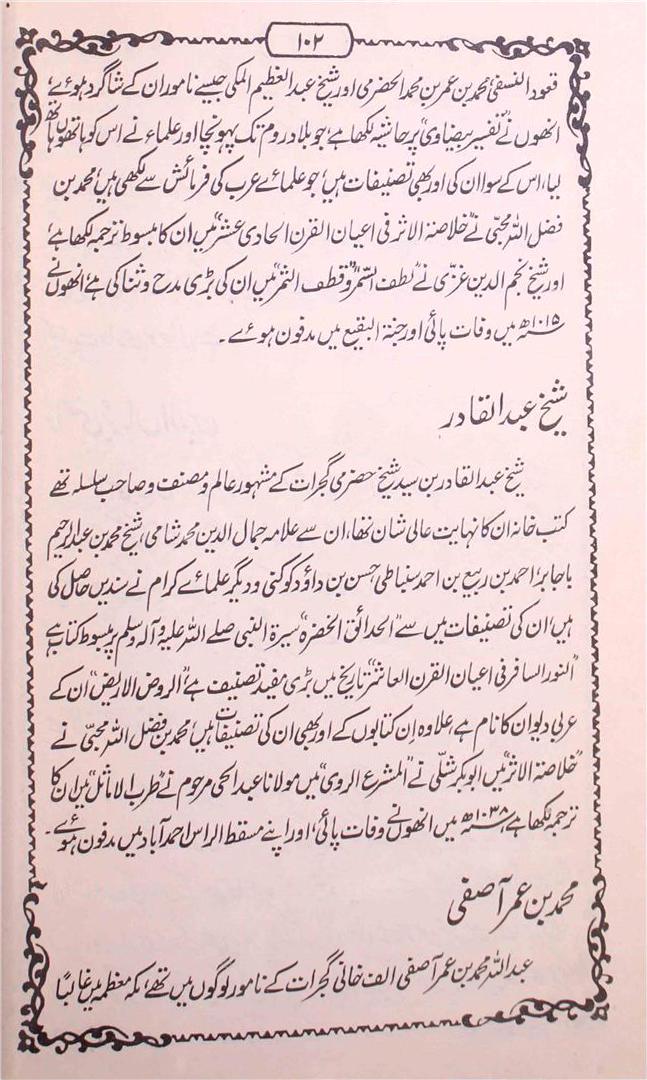 ۱۰۲
قعود النسفی، محمد بن عمر بن محمد الحضرمی اور شیخ عبدالعظیم المکی جیسے نامور ان کے شاگرد ہوئے،
انھوں نے "تفسیر بیضاوی" پر حاشیہ لکھا ہے، جو بلاد روم تک پہونچا اور علماء نے اس کو ہاتھوں ہاتھ
لیا، اس کے سوا ان کی اور بھی تصنیفات ہیں، جو علمائے عرب کی فرمائش سے لکھی ہیں، محمد بن
فضل اللہ محبّی نے "خلاصۃ الاثر فی اعیان القرن الحادی عشر" میں ان کا مبسوط ترجمہ لکھا ہے،
اور شیخ نجم الدین غزّی نے "لطف السّمر و قطف الثمر" میں ان کی بڑی مدح و ثنا کی ہے، انھوں نے
۱۰۱۵ھ میں وفات پائی اور جنۃ البقیع میں مدفون ہوئے۔
شیخ عبدالقادر
شیخ عبدالقادر بن سید شیخ حضرمی گجرات کے مشہور عالم و مصنف و صاحب سلسلہ تھے
کتب خانہ ان کا نہایت عالی شان تھا، ان سے علامہ جمال الدین محمد شامی، شیخ محمد بن عبدالرحیم
باجابر، احمد بن ربیع بن احمد سنباطی، حسن بن داؤد کوکنی و دیگر علمائے کرام نے سندیں حاصل کی
ہیں، ان کی تصنیفات میں سے "الحدائق الخضرہ" سیرۃ النبی صلے اللہ علیہ وآلہ وسلم پر مبسوط کتاب ہے
"النور السافر فی اعیان القرن العاشر" تاریخ میں بڑی مفید تصنیف ہے، "الروض الاریض" ان کے
عربی دیوان کا نام ہے، علاوہ اِن کتابوں کے اور بھی ان کی تصنیفات ہیں، محمد بن فضل اللہ محبّی نے
"خلاصۃ الاثر" میں ابوبکر شلّی نے "المشرع الروی" میں مولانا عبدالحی مرحوم نے "طرب الاماثل" میں ان کا
ترجمہ لکھا ہے، ۱۰۳۸ھ میں انھوں نے وفات پائی، اور اپنے مسقط الراس احمد آباد میں مدفون ہوئے۔
محمد بن عمر آصفی
عبداللہ محمد بن عمر آصفی الف خانی گجرات کے نامور لوگوں میں تھے، مکہ معظمہ میں غالباً